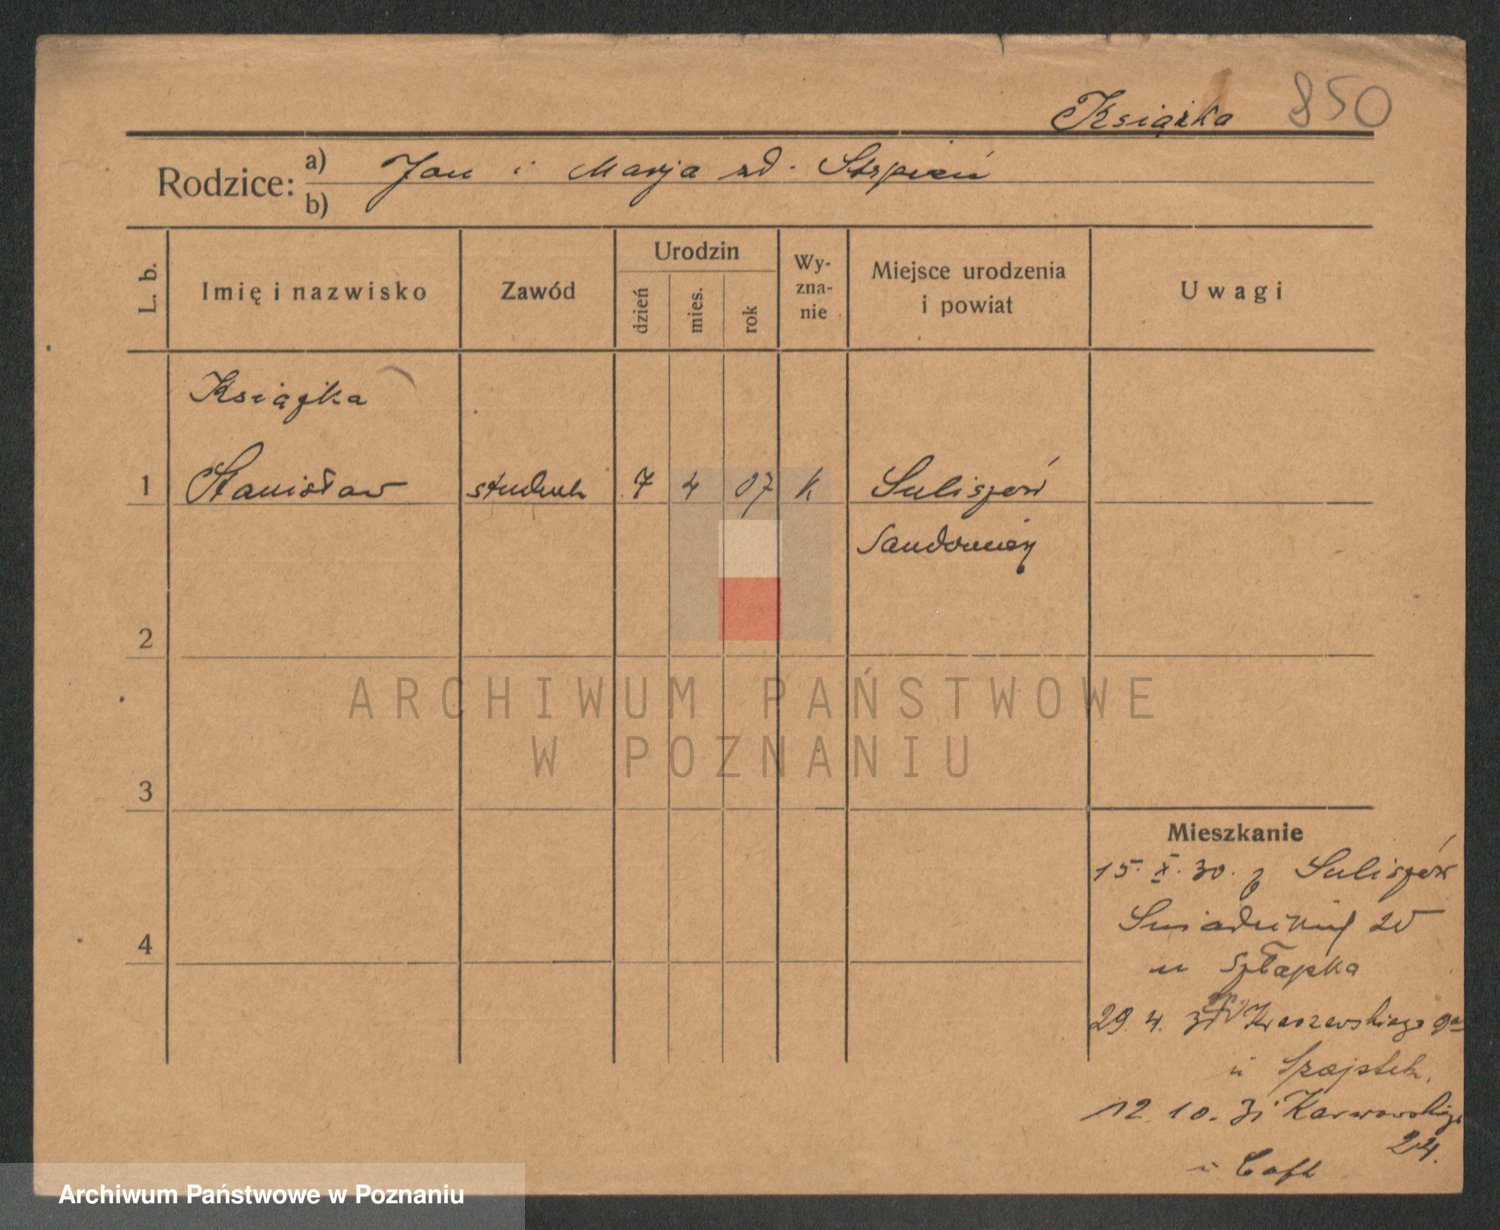 Książka 850
Rodzice: a) Jan i Marja zd. Stępień
b)
L. b.
Imię i nazwisko
Zawód
Urodzin
dzień
mies.
rok
Wy-
zna-
nie
Miejsce urodzenia
i powiat
Uwagi
Książka
1 Stanisław student 7 4 07 k Suliszów
Sandomierz
2
3
4
ARCHIWUM PAŃSTWOWE
W POZNANIU
Mieszkanie
15. X. 30. z Suliszów
Śniadeckich 20
u Szłapka
29. 4. 31 Kraszewskiego 9a
u
12. 10. 31 Karwowskiego
24.
Archiwum Państwowe w Poznaniu